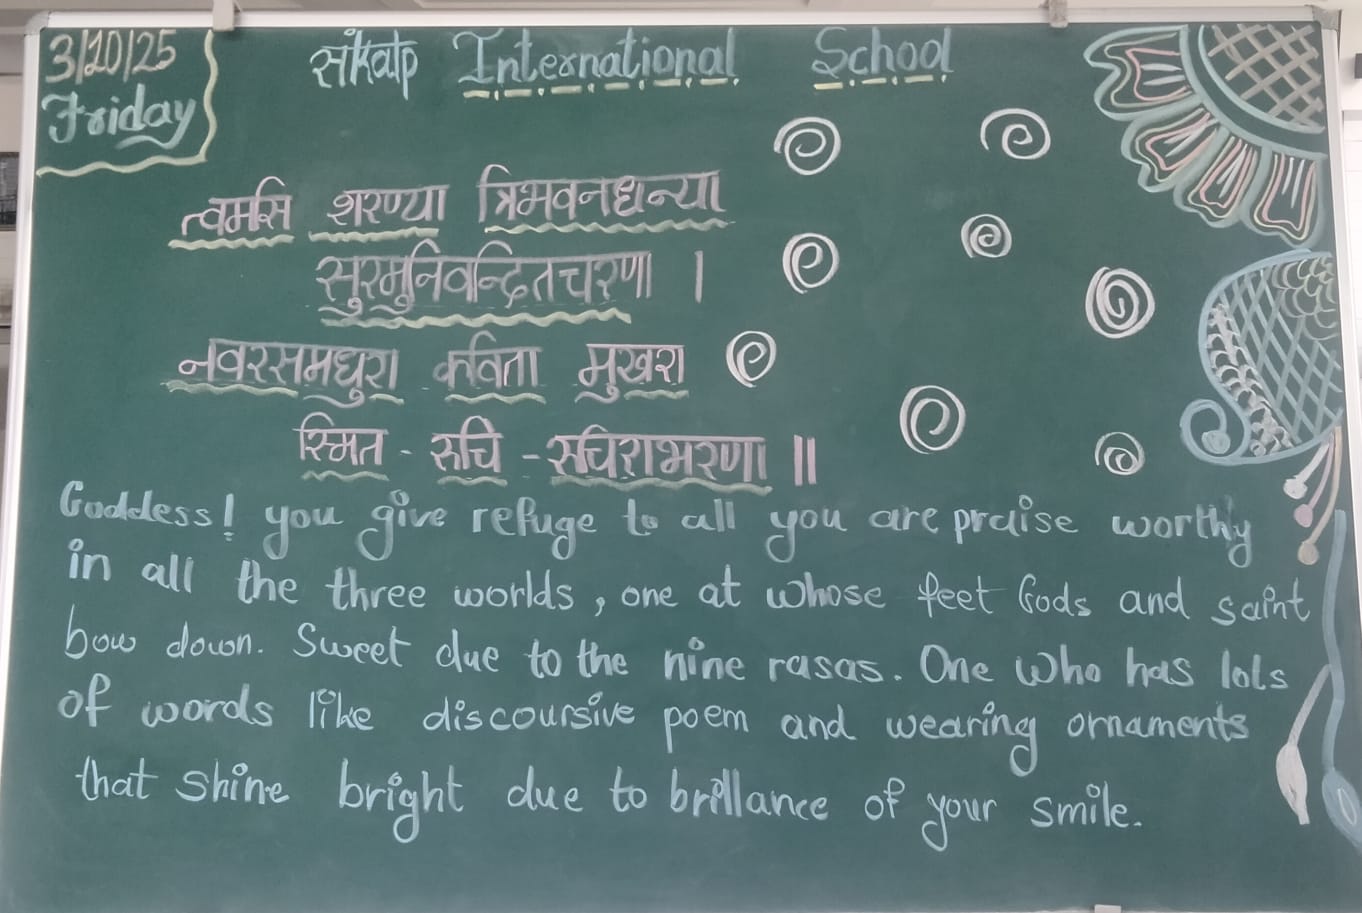 3/10/25
Friday
संकल्प International School
त्वमसि शरण्या त्रिभवनधन्या
सुरमुनिवन्दितचरणा ।
नवरसमधुरा कविता मुखरा
स्मित - रुचि - रुचिराभरणा ॥
Goddess! you give refuge to all you are praise worthy
in all the three worlds, one at whose feet Gods and saint
bow down. Sweet due to the nine rasas. One who has lots
of words like discoursive poem and wearing ornaments
that shine bright due to brillance of your smile.